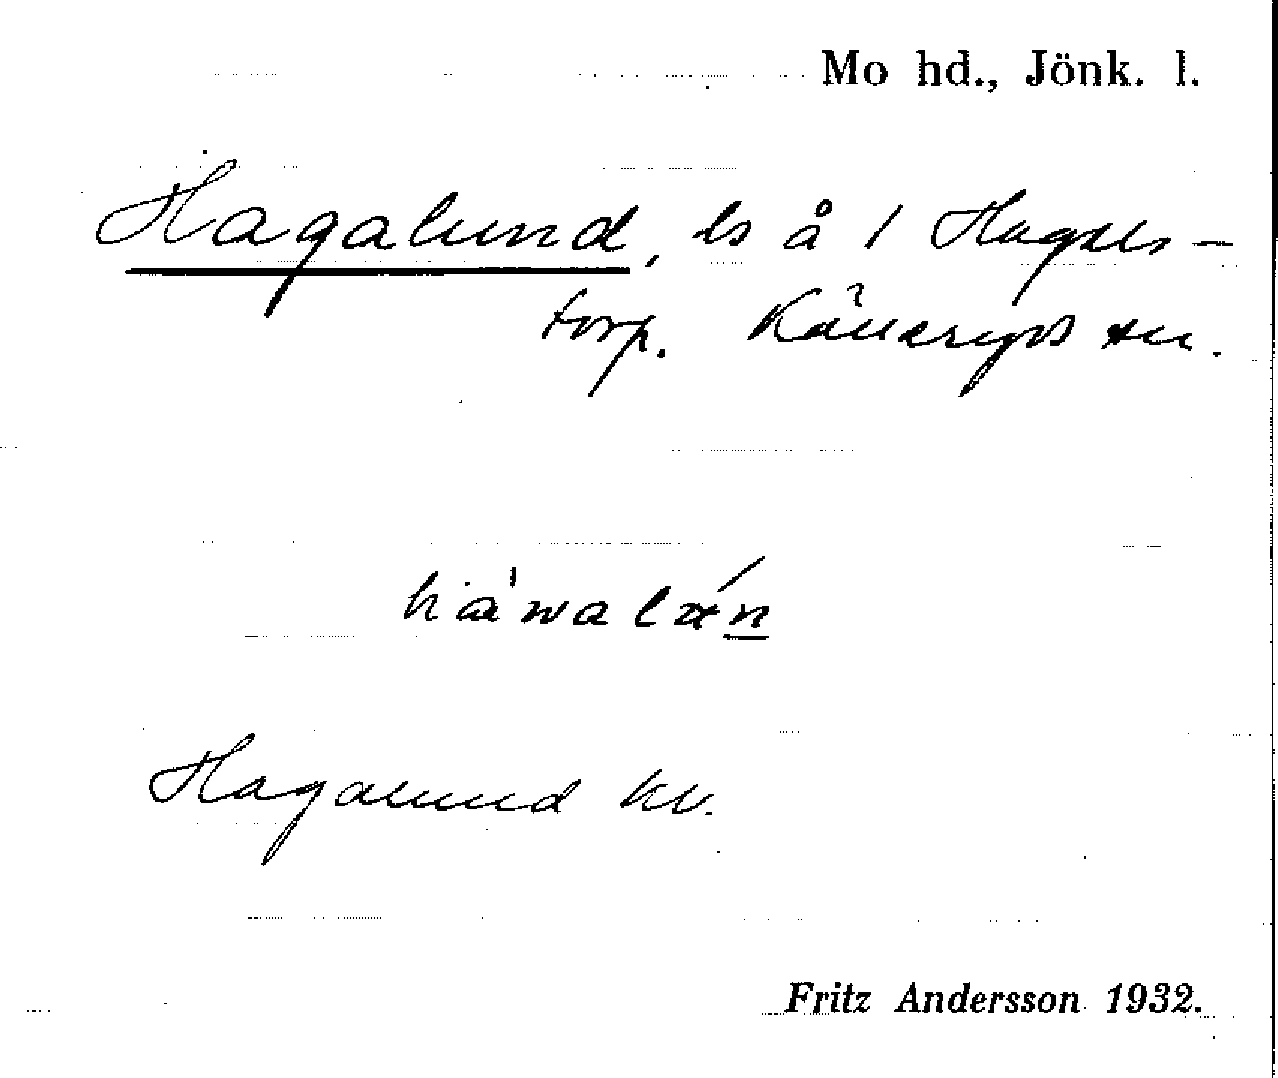 Mo hd., Jönk. l.
Hagalund, ls å 1 Hagels-
torp. Kålleryds sn.
Hagalund kv.
Fritz Andersson 1932.